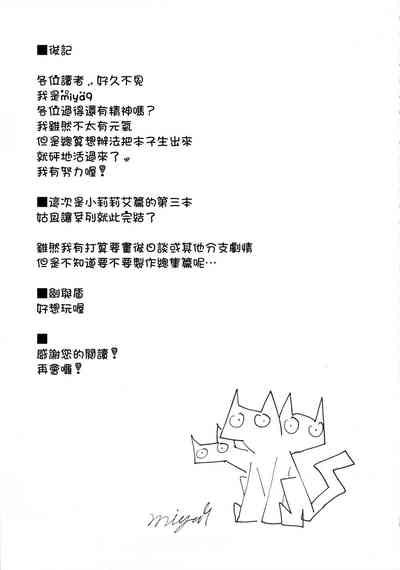 ■後記
各位讀者，好久不見
我是miya9
各位過得還有精神嗎？
我雖然不太有元氣
但是總算想辦法把本子生出來
就砰地活過來了。
我有努力喔！
■這次是小莉莉艾篇的第三本
姑且讓系列就此完結了
雖然我有打算要畫後日談或其他分支劇情
但是不知道要不要製作總集篇呢…
■劍與盾
好想玩喔
■
感謝您的閱讀！
再會囉！
miya9